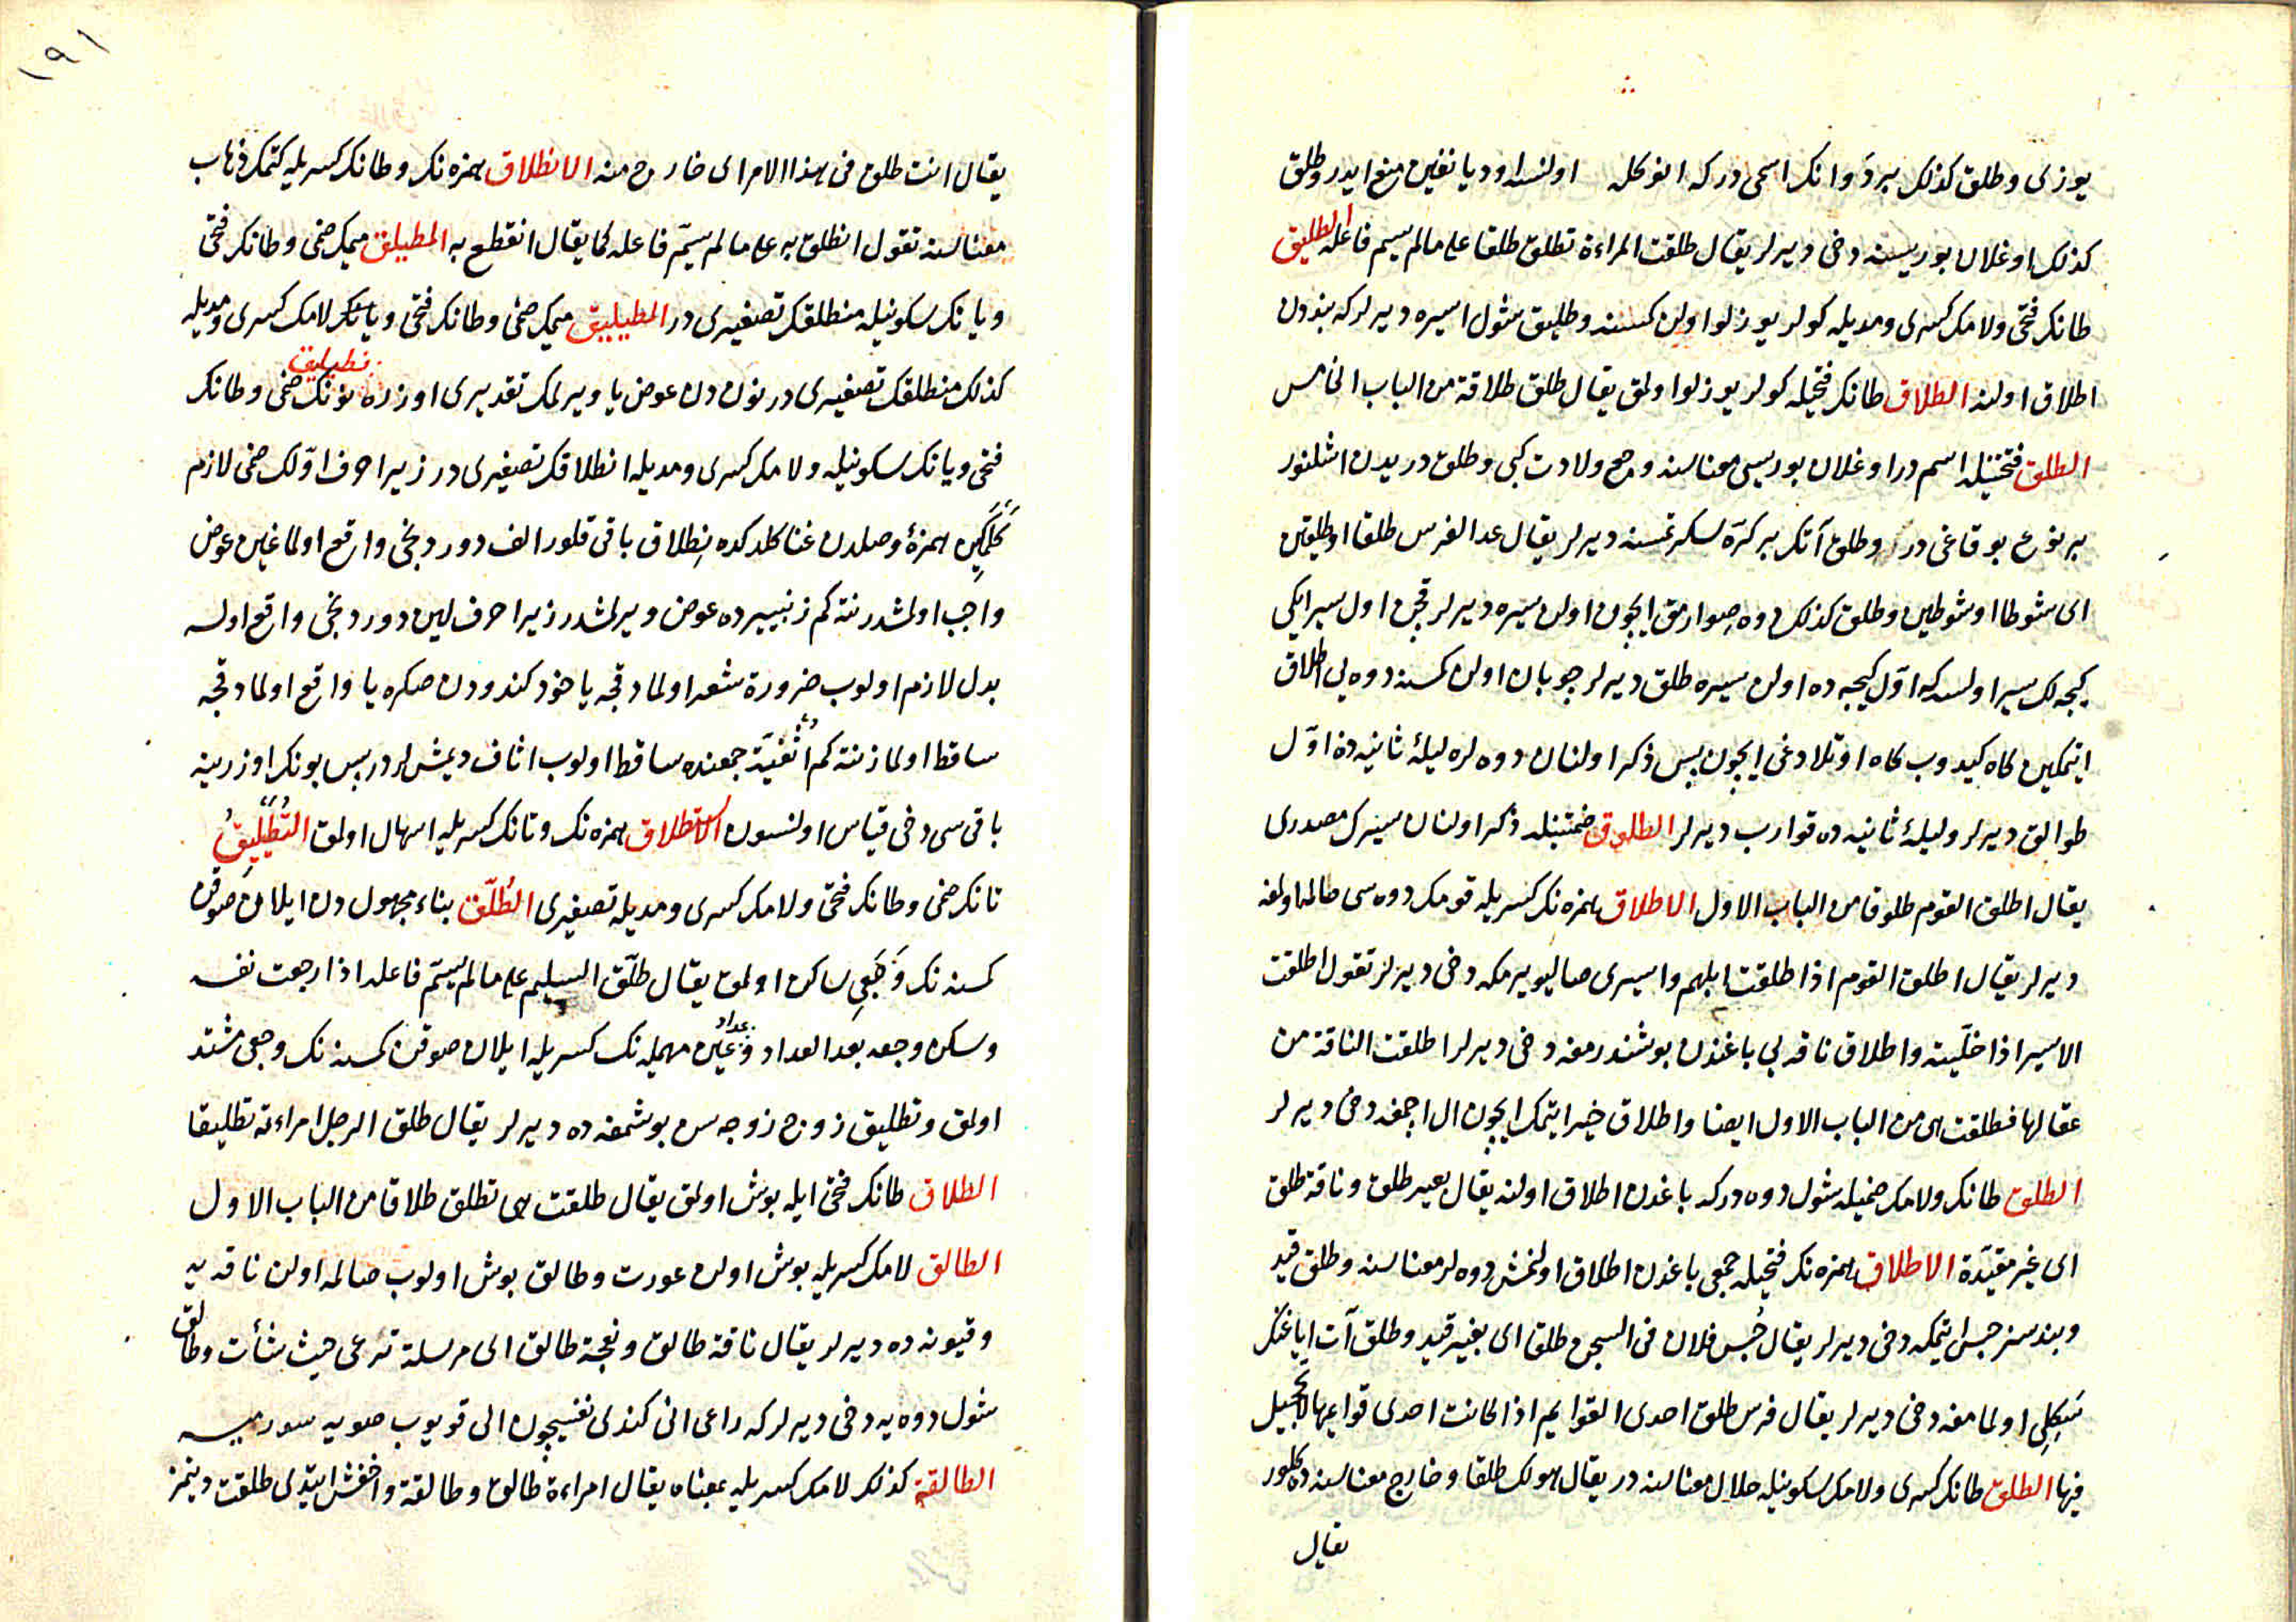 يوزى وطلق كذلك بر دوانك اسمى دركه انوكله اولنسه اود يانغين منع ايدر وطلق
كذلك اوغلان بوريسنه دخى ديرلر يقال طلقت المراءة تطلق طلقا على مالم يسم فاعله الطليق
طانك فتحى ولامك كسرى ومديله كولر يوزلو اولن كمسنه وطليق شول اسيره ديرلركه بندون
اطلاق اولنه الطلاق طانك فتحيله كولر يوزلو اولمق يقال طلق طلاقة من الباب الخامس
الطلق فتحتيله اسم در اوغلان بوريسى معناسنه وجع ولادت كبى وطلق دريدن اشلنور
بر نوع بوقاغى در وطلق آتك بر كرّه سكرتمسنه ديرلر يقال عدا الفرس طلقا او طلقين
اى شوطا او شوطين وطلق كذلك دوه صوارمق ايچون اولن سيره ديرلر قچن اول سير ايكى
كيجه لك سير اولسه كه اوّل كيجه ده اولن سيره طلق ديرلر چوبان اولن كمسنه دوه يى اطلاق
ايتمكين كاه كيدوب كاه اوتلادغى ايچون پس ذكر اولنان دوه لره ليلۀ ثانيه ده اوّل
طوالق ديرلر وليلۀ ثانيه ده قوارب ديرلر الطلوق ضمتيله ذكر اولنان سيرك مصدرى
يقال اطلق القوم طلوقا من الباب الاول الاطلاق همزه نك كسريله قومك دوه سى صالمه اولمغه
ديرلر يقال اطلق القوم اذا طلقت ابلهم واسيرى صاليويرمكه دخى ديرلر تقول اطلقت
الاسير اذا خلّيته واطلاق ناقه يى باغندن بوشندرمغه دخى ديرلر اطلقت الناقة من
عقالها فطلقت هى من الباب الاول ايضا واطلاق خير ايتمك ايچون ال اچمغه دخى ديرلر
الطلق طانك ولامك ضميله شول دوه دركه باغدن اطلاق اولنه يقال بعير طلق وناقة طلق
اى غير مقيّدة الاطلاق همزه نك فتحيله جمعى باغدن اطلاق اولنمش دوه لر معناسنه وطلق قيد
وبندسز حبس ايتمكه دخى ديرلر يقال حُبس فلان فى السجن طلقا اى بغير قيد وطلق آت اياغنك
سَكِلى اولمامغه دخى ديرلر يقال فرس طلق احدى القوايم اذا كانت احدى قوايمها لا تحجيل
فيها الطلق طانك كسرى ولامك سكونيله حلال معناسنه در يقال هو لك طلقا وخارج معناسنه ده كلور
يقال
١٩١
يقال انت طلق فى هذا الامر اى خارج منه الانطلاق همزه نك وطانك كسريله كتمك ذهاب
معناسنه تقول انطلق به على مالم يسمّ فاعله كما يقال انقطع به المطيلق ميمك ضمى وطانك فتحى
ويانك سكونيله منطلقك تصغيرى در المطيليق ميمك ضمى وطانك فتحى ويانك لامك كسرى ومديله
كذلك منطلقك تصغيرى در نون دن عوض يا ويرلمك تقديرى اوزره نطيليق نونك ضمى وطانك
فتحى ويانك سكونيله ولامك كسرى ومديله انطلاقك تصغيرى در زيرا حرف اوّلك ضمى لازم
كلمكين همزۀ وصلدن غنا كلدكده نطلاق باقى قلور الف دوردنجى واقع اولماغين عوض
واجب اولمشدر نته كم زنيبيرده عوض ويرلمشدر زيرا حرف لين دوردنجى واقع اولسه
بدل لازم اولوب ضرورة شعر اولمادقجه ياخود كندودن صكره يا واقع اولمادقجه
ساقط اولماز نته كم اُثْفيّة جمعنده ساقط اولوب اثاف ديمشلردر پس بونك اوزرينه
باقى سى دخى قياس اولنسون الاستطلاق همزه نك وتانك كسريله اسهال اولمق التُطَيْليقُ
تانك ضمى وطانك فتحى ولامك كسرى ومديله تصغيرى الطُلّق بناء مجهول دن ايلان صوقن
كمسنه نك وَجَعى ساكن اولمق يقال طلّق السليم على مالم يسمّ فاعله اذا رجعت نفسه
وسكن وجعه بعد العداد وعداد عين مهمله نك كسريله ايلان صوقن كمسنه نك وجعى مشتد
اولمق وتطليق زوج زوجه سن بوشمغه ده ديرلر يقال طلق الرجل امراءته تطليقا
الطلاق طانك فتحى ايله بوش اولمق يقال طلقت هى تطلق طلاقا من الباب الاول
الطالق لامك كسريله بوش اولن عورت وطالق بوش اولوب صالمه اولن ناقه يه
وقيونه ده ديرلر يقال ناقة طالق ونعجة طالق اى مرسلة ترعى حيث شأت وطالق
شول دوه يه دخى ديرلركه راعى انى كندى نفسيچون الى قويوب صويه سورميه
الطالقة كذلك لامك كسريله بمعناه يقال امراءة طالق وطالقة واخفش ايتدى طلقت دينمز